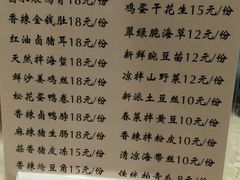 香辣金钱肚18元/份
红油卤猪耳18元/份
天然拌海蜇18元/份
鲜沙姜鸡丝18元/份
松花蛋鸭卷18元/份
香辣卤鸭脖18元/份
麻辣猪生肠18元/份
蒜香皮冻15元/份
香辣烩豆角15元/份
鸡蛋干花生15元/份
翠绿脆海草12元/份
新鲜豌豆苗12元/份
凉拌山野菜12元/份
新派土豆丝10元/份
春菜拌黄豆10元/份
香辣拌粉皮10元/份
清凉海带丝10元/份